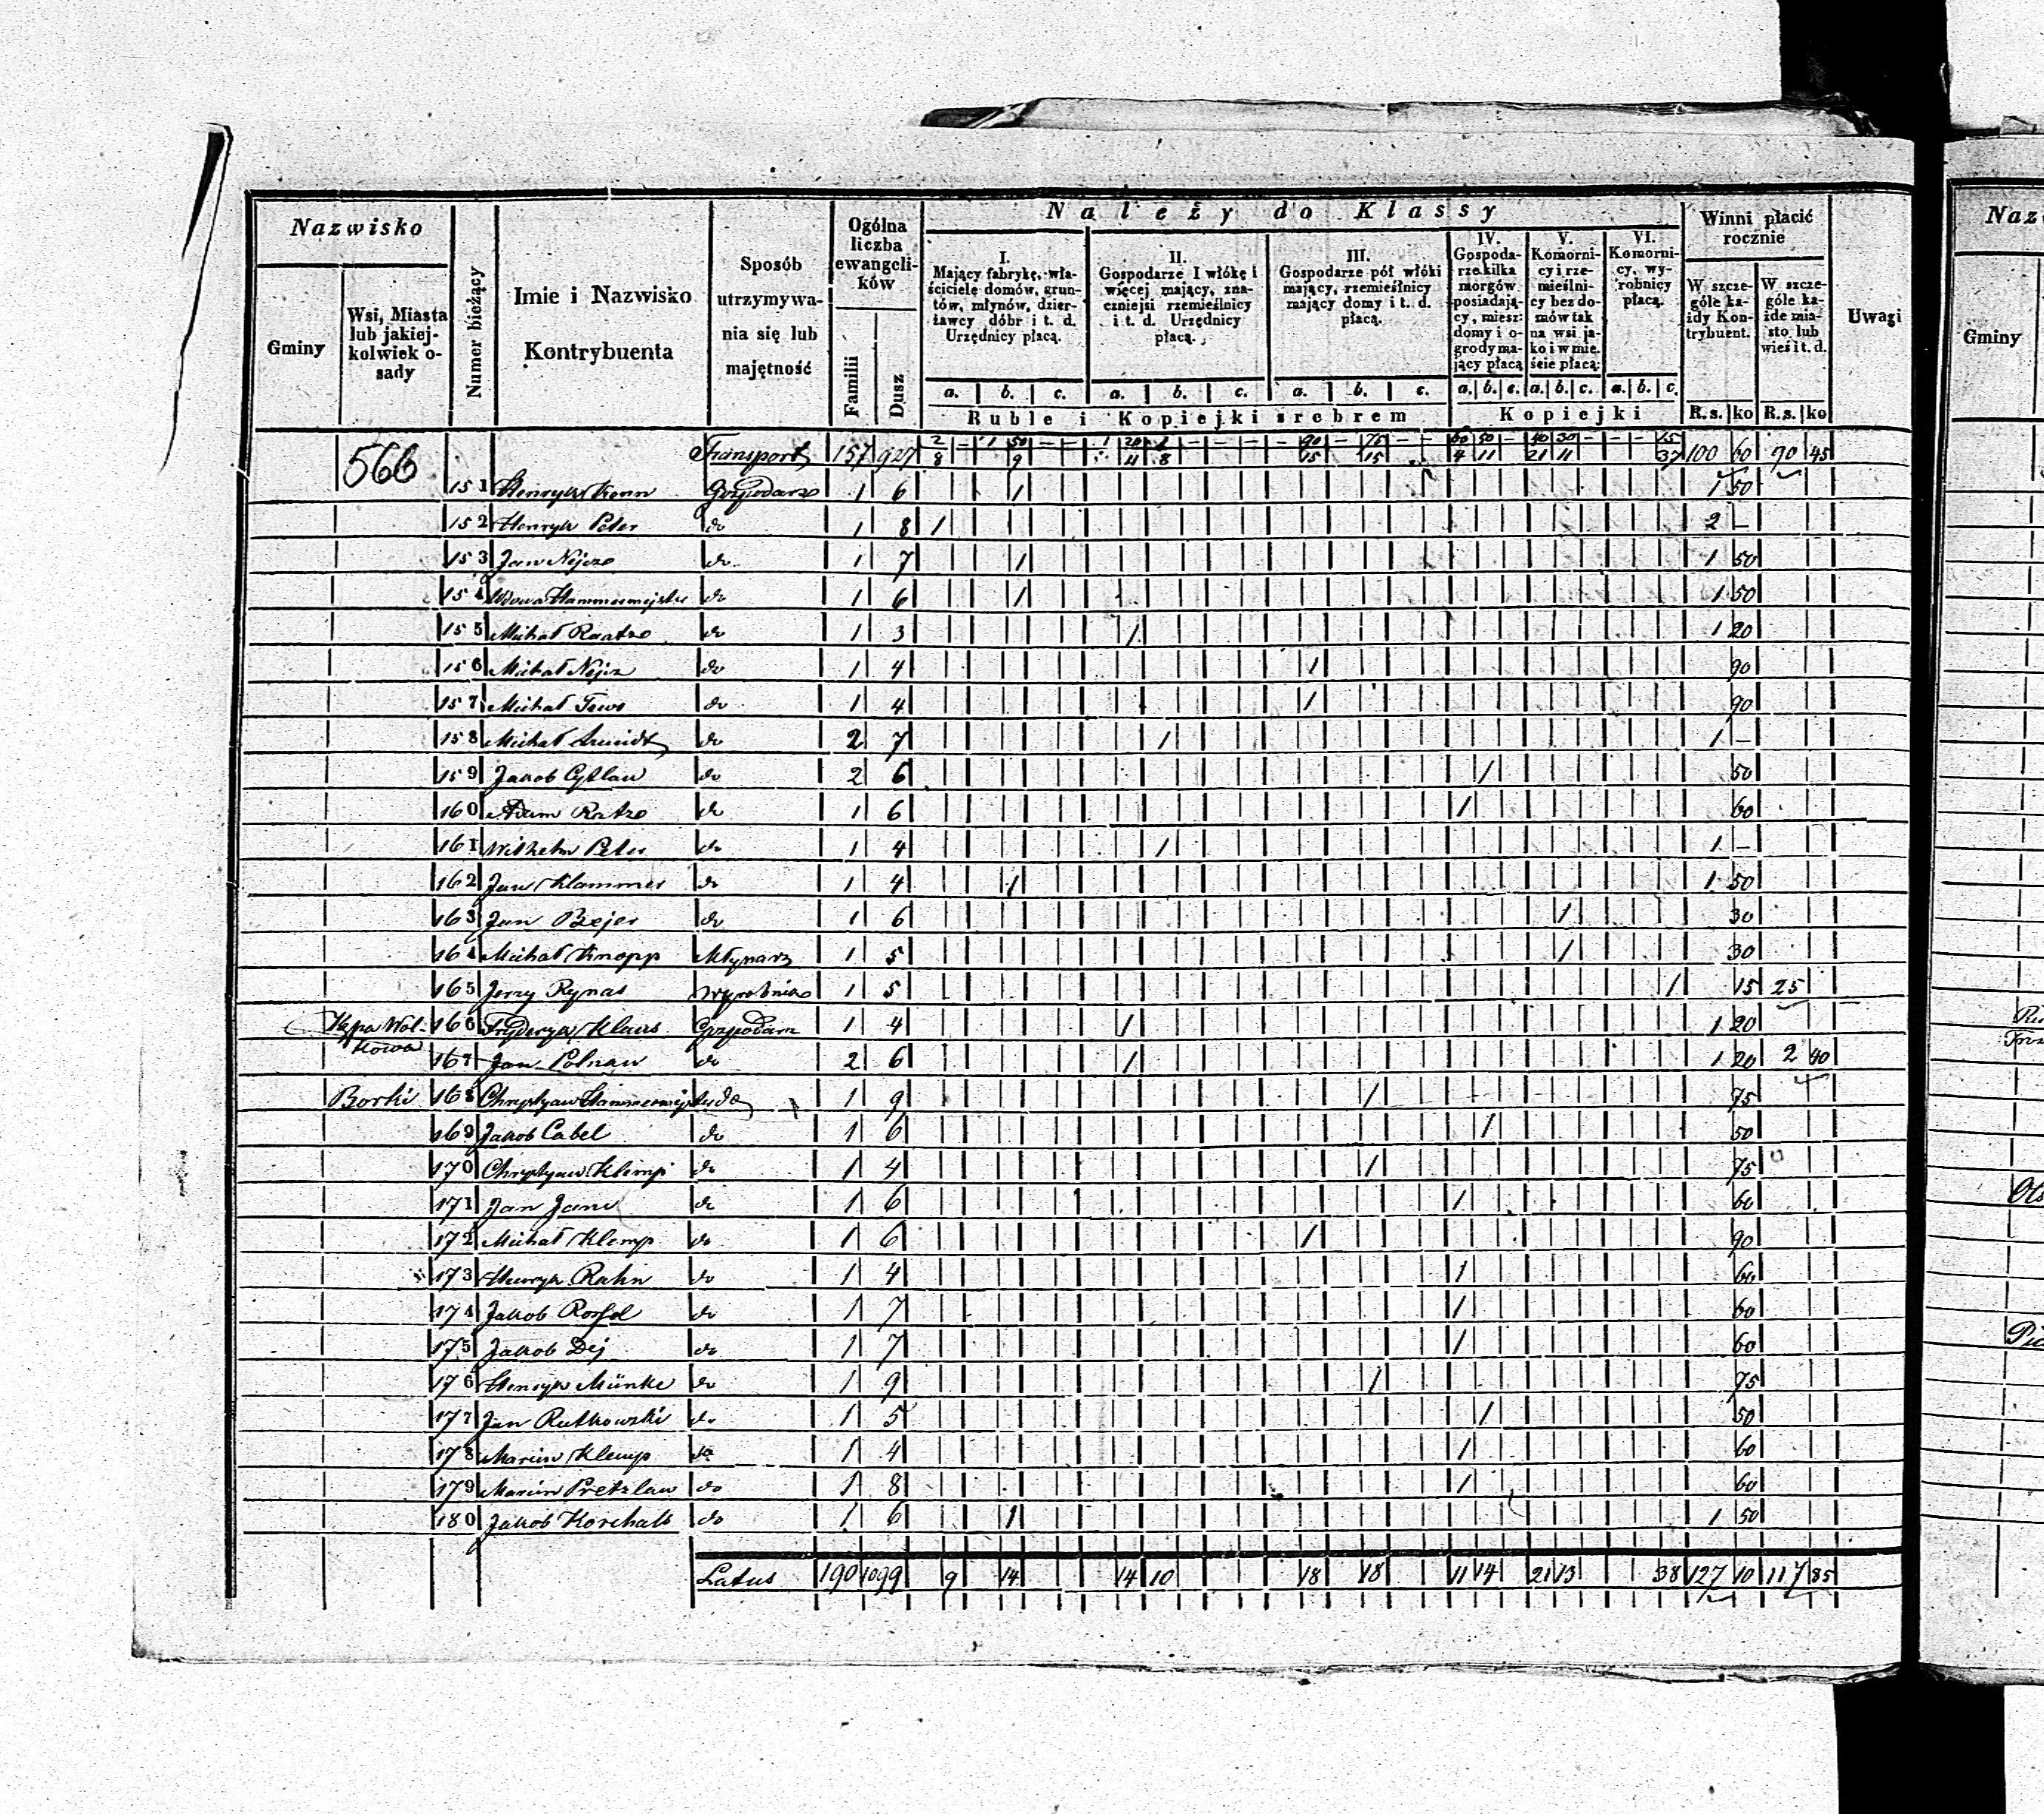 Nazwisko
Gminy
Wsi, Miasta lub jakiej-kolwiek o-sady
Numer bieżący
Imie i Nazwisko Kontrybuenta
Sposób utrzymywa-nia się lub majętność
Ogólna liczba ewangeli-ków
Familii
Dusz
Należy do Klassy
I. Mający fabrykę, wła-ściciele domów, grun-tów, młynów, dzier-żawcy dóbr i t. d. Urzędnicy płacą.
II. Gospodarze I włókę i więcej mający, zna-czniejsi rzemieślnicy i t. d. Urzędnicy płacą.
III. Gospodarze pół włóki mający, rzemieślnicy mający domy i t. d. płacą.
IV. Gospoda-rze kilka morgów posiadają-cy, miesz: domy i o-grody ma-jący płacą
V. Komorni-cy i rze-mieślni-cy bez do-mów tak na wsi ja-ko i w mie-ście płacą:
VI. Komorni-cy, wy-robnicy płacą.
a. b. c. a. b. c. a. b. c. a. b. c. a. b. c. a. b. c.
Ruble i Kopiejki srebrem
Kopiejki
Winni płacić rocznie
W szcze-góle ka-żdy Kon-trybuent.
W szcze-góle ka-żde mia-sto lub wieś i t. d.
R.s. ko R.s. ko
Uwagi
566 Transport 157 927
2 – 1 50 – – 1 20 1 – – – – 90 – 75 – – 60 50 – 40 30 – – – 15
8 9 4 8 15 15 4 11 21 11 37 100 60 90 45
151 Henryk Konn Gospodarz 1 6 1 1 50
152 Henryk Peter do 1 8 1 2 –
153 Jan do 1 7 1 1 50
154 Wdowa do 1 6 1 1 50
155 Michał Raatze do 1 3 1 1 20
156 Michał do 1 4 1 90
157 Michał do 1 4 1 90
158 Michał do 2 7 1 1 –
159 Jakob do 2 6 1 50
160 Adam Ratze do 1 6 1 60
161 Wilhelm Peter do 1 4 1 1 –
162 Jan Klammer do 1 4 1 1 50
163 Jan Bejer do 1 6 1 30
164 Michał Knopp Młynarz 1 5 1 30
165 Jerzy Rynas wyrobnik 1 5 1 15 25
Kępa Wol-kowa 166 Fryderyk Klaus Gospodarz 1 4 1 1 20
167 Jan Polnau do 2 6 1 1 20 2 40
Borki 168 Chrystyan do 1 9 1 75
169 Jakob Cabel do 1 6 1 50
170 Chrystyan Klimp do 1 4 1 75
171 Jan do 1 6 1 60
172 Michał Klemp do 1 6 1 90
173 Henryk Rahn do 1 4 1 60
174 Jakob do 1 7 1 60
175 Jakob Dej do 1 7 1 60
176 Henryk Münke do 1 9 1 75
177 Jan Rutkowski do 1 5 1 50
178 Marcin Klemp do 1 4 1 60
179 Marcin Pretzlaw do 1 8 1 60
180 Jakob do 1 6 1 1 50
Latus 190 1099 9 14 14 10 18 18 11 14 21 13 38 127 10 117 85
Gminy